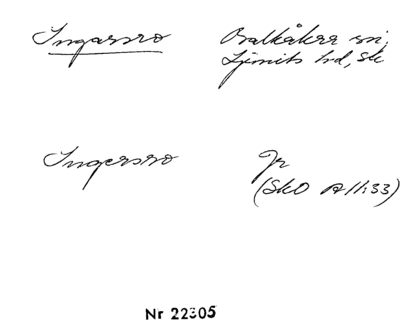 Ingarsro Balkåkra sn,
Ljunits hd, Sk
Ingersro Jr
(SkO A II:33)
Nr 22305